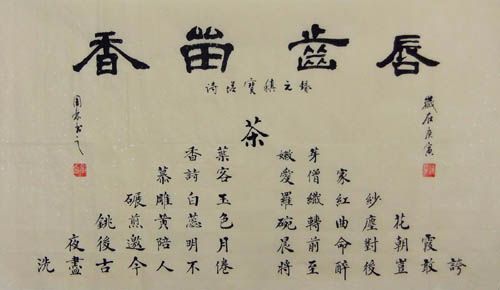 唇齒留香
錄元稹寶塔詩
歲在庚寅
茶
香葉 嫩芽
慕詩客 愛僧家
碾雕白玉 羅織紅紗
銚煎黃蕊色 碗轉曲塵花
夜後邀陪明月 晨前命對朝霞
洗盡古今人不倦 將至醉後豈敢誇